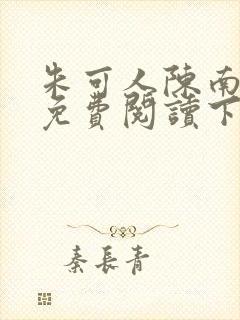 朱可人陳南
免費閱讀下
秦長青